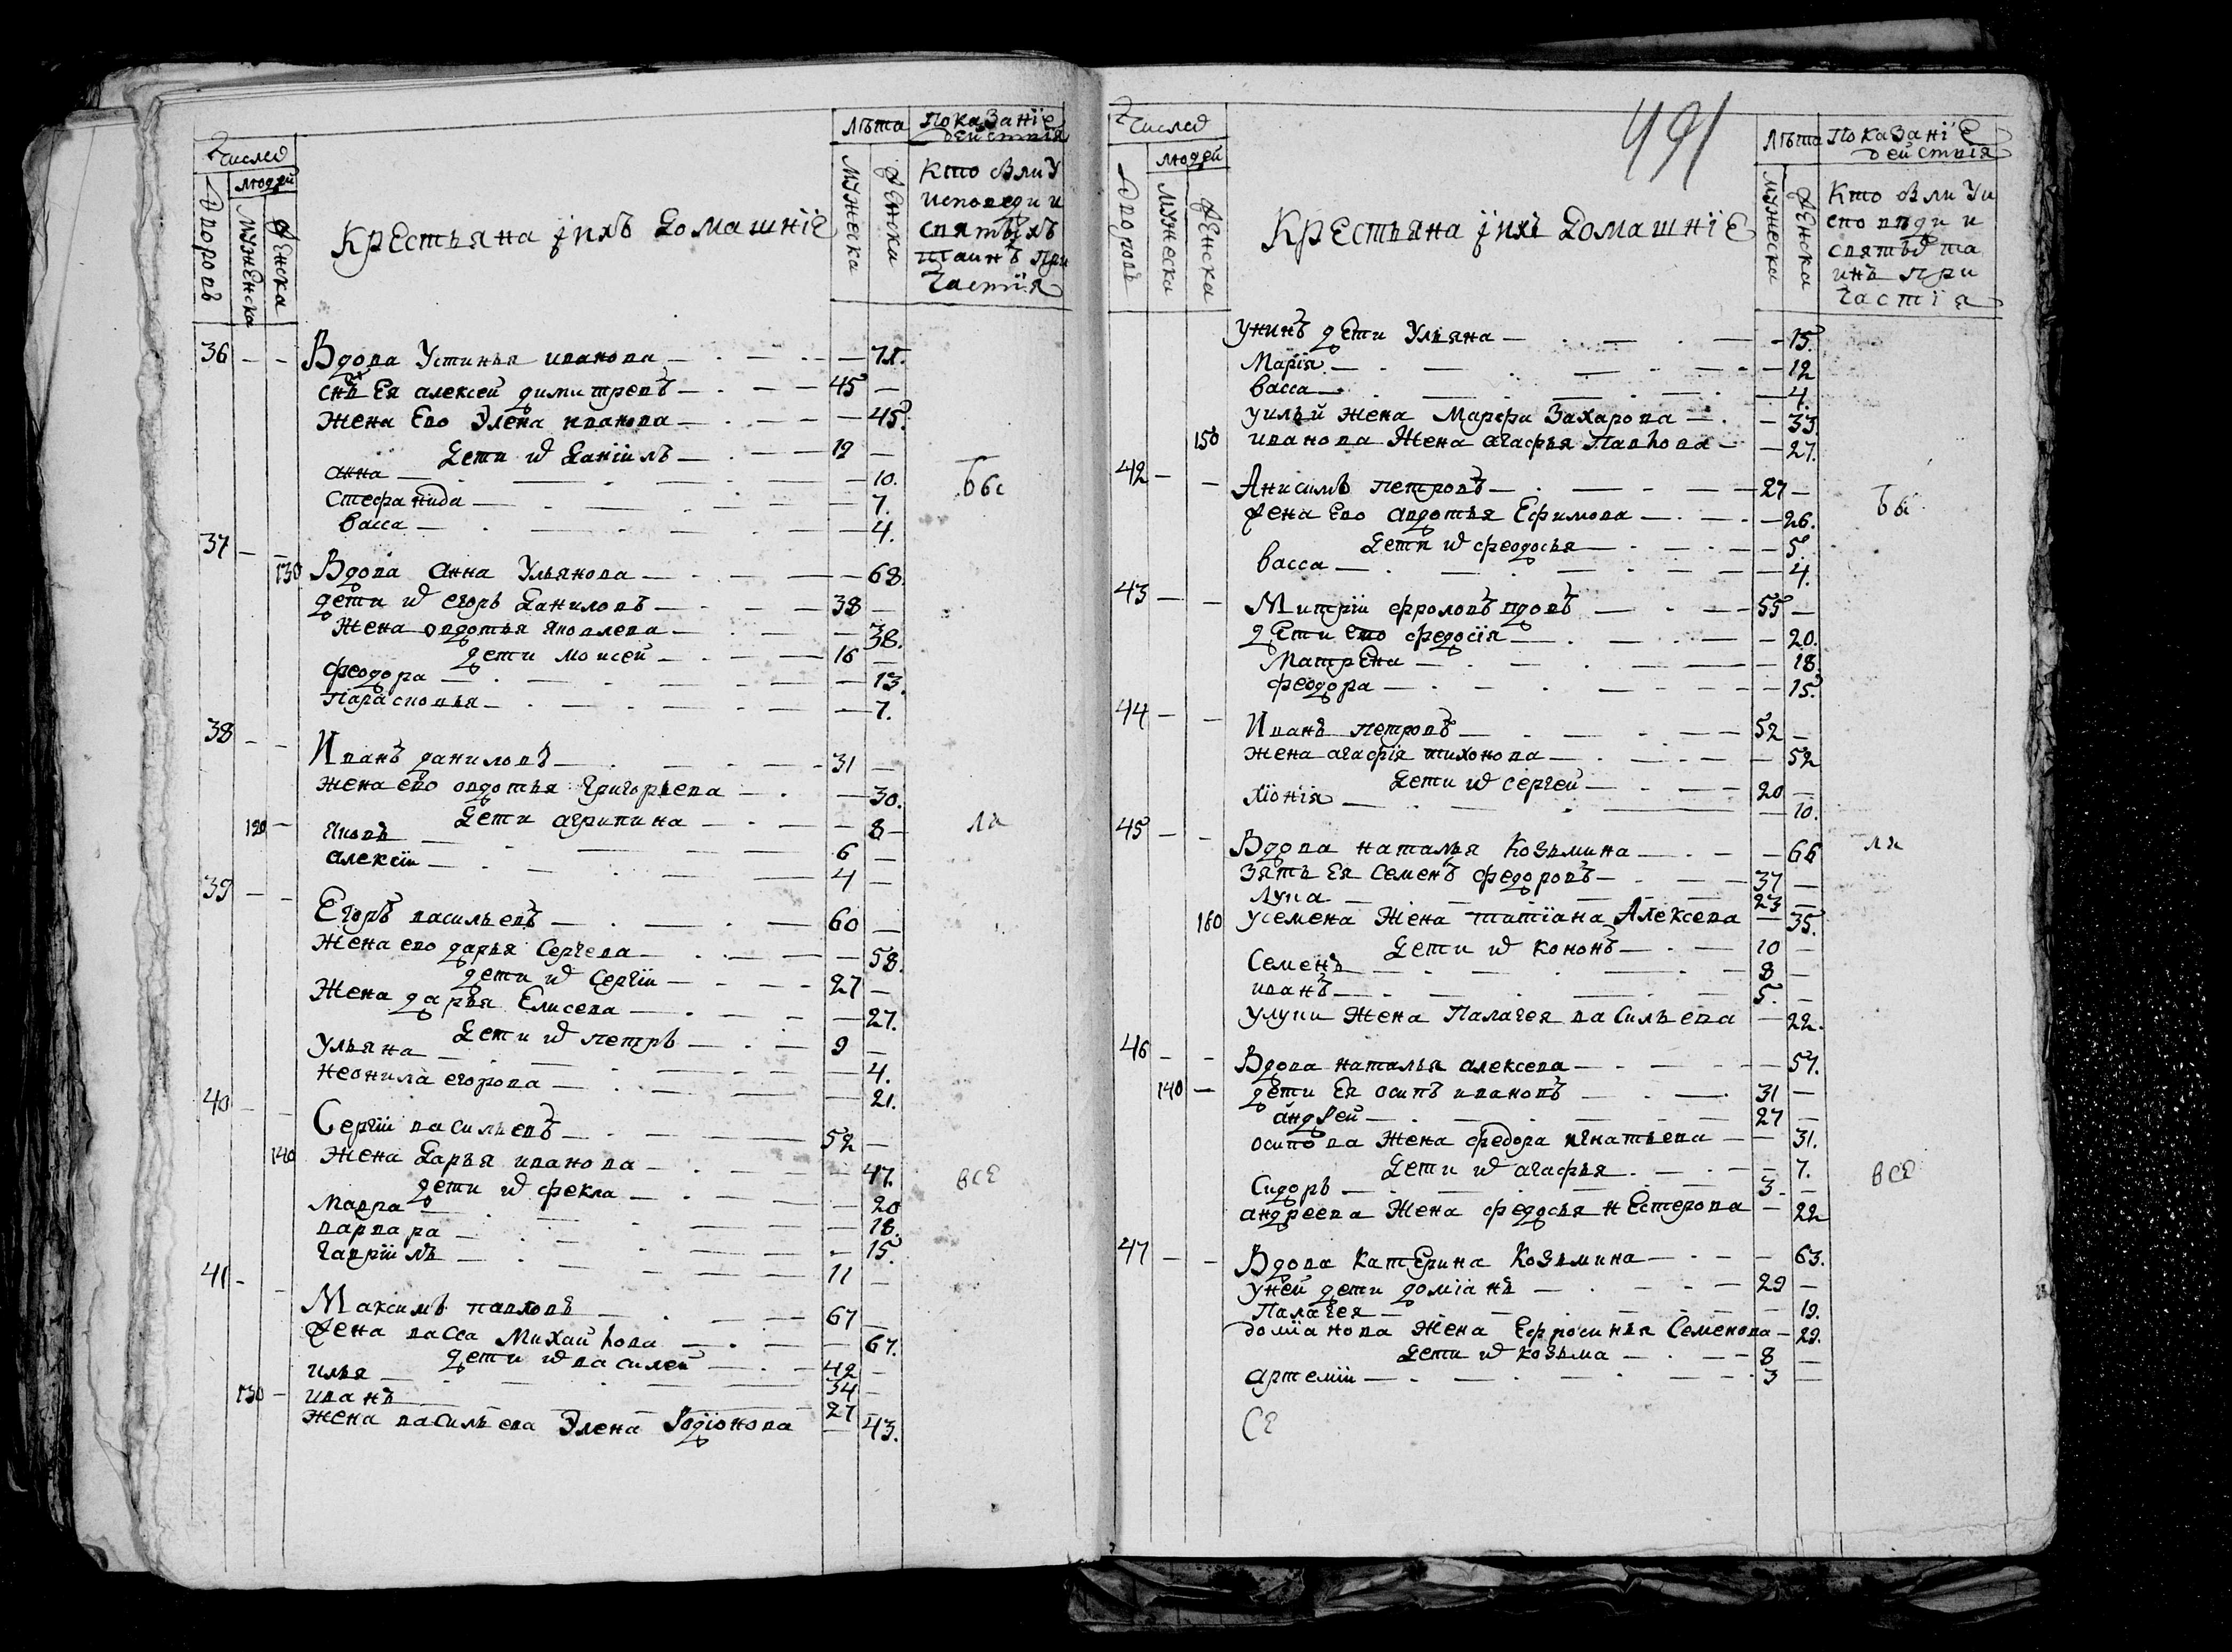 Число
Дворовъ
людей
мужеска
женска
Крестьяна їихъ домашнїе
лѣта
мужеска
женска
Показанїе
действїя
Кто был у
исповеди и
святыхъ
таинъ при
частїя
36 — — Вдова Устинья иванова — 71.
снъ Ея алексей димитревъ — 45 —
жена Ево Элена иванова — 45.
Дети их Данїилъ — 12 —
анна — 10.
Стефанида — 7.
васса — 4.
бы
37 — 130 Вдова Анна Ульянова — 68
дети их егоръ Даниловъ — 38 —
Жена овдотья яковлева — 38.
дети моисей — 16 —
феодора — 13.
Парасковья — 7.
38 — — Иванъ даниловъ — 31 —
жена ево овдотья Григорьева — 30.
Дети агрипина — 8 —
120 — яковъ — 6 —
алексїи — 4 —
ли
39 — — Егоръ васильевъ — 60 —
жена ево дарья Сергева — 58.
дети их Сергїи — 27 —
Жена дарья Елисева — 27.
Дети их петръ — 9 —
ульяна — 4.
неонила егорова — 21.
40 — — Сергїи васильевъ — 52 —
140 Жена Дарья иванова — 47.
дети их фекла — 20
мавра — 18.
варвара — 15.
гаврїилъ — 11 —
все
41 — — Максимъ павловъ — 67 —
жена васса Михайлова — 67.
дети их василей — 42 —
илья — 34 —
130 — иванъ — 27 —
жена васильева Элена Родїонова — 43.
491
Число
Дворовъ
людей
мужеска
женска
Крестьяна їихъ домашнїе
лѣта
мужеска
женска
Показанїе
действїя
Кто был у и
споведи и
святых та
инъ при
частїя
унихъ дети Ульяна — 15.
Марїя — 12
васса — 4.
уильи жена Марфа Захарова — 33
150 иванова жена агафья Павлова — 27.
42 — — Анисимъ петровъ — 27 —
жена ево авдотья Ефимова — 26.
Дети их феодосья — 5.
васса — 4.
бы
43 — — Митрїи фроловъ вдовъ — 55 —
дети ево федосїя — 20.
Матрена — 18.
феодора — 15.
44 — — Иванъ петровъ — 52 —
жена агафїя тихонова — 52
Дети их сергей — 20 —
хїонїя — 10.
45 — — Вдова наталья Козьмина — 66
зять Ея Семенъ федоровъ — 37 —
Лупа — 23 —
160 усемена Жена татїана Алексева — 35.
Дети их кононъ — 10 —
Семенъ — 8 —
иванъ — 5. —
улупи жена Палагея васильева — 22.
ли
46 — — Вдова наталья алексева — 57.
140 — дети Ея осипъ ивановъ — 31 —
андрей — 27 —
осипова жена федора игнатьева — 31.
Дети их агафья — 7.
Сидоръ — 3. —
андреева жена федосья нестерова — 22
все
47 — — Вдова Катерина Козьмина — 63.
уней дети домїанъ — 29 —
Палагея — 19.
домїанова жена Ефросинья Семенова — 29.
Дети их козьма — 8 —
артемїи — 3 —
се